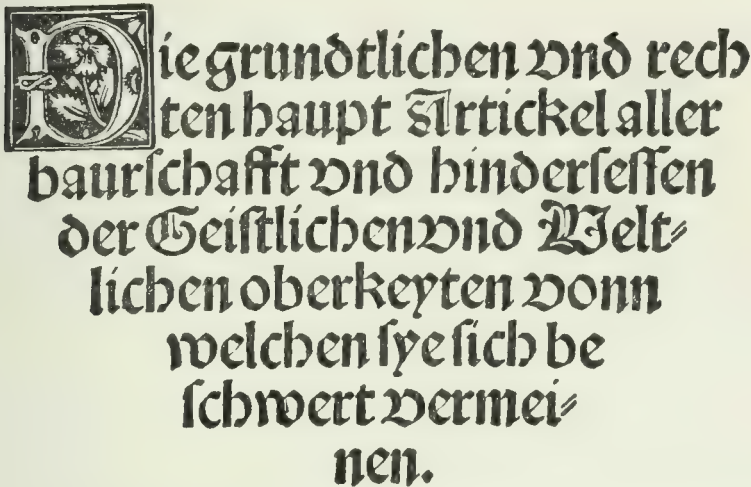 Die grundtlichen vnd rech
ten haupt Artickel aller
baurſchafft vnd hinderſeſſen
der Geiſtlichen vnd Welt⸗
lichen oberkeyten vonn
welchen ſye ſich be
ſchwert vermei⸗
nen.